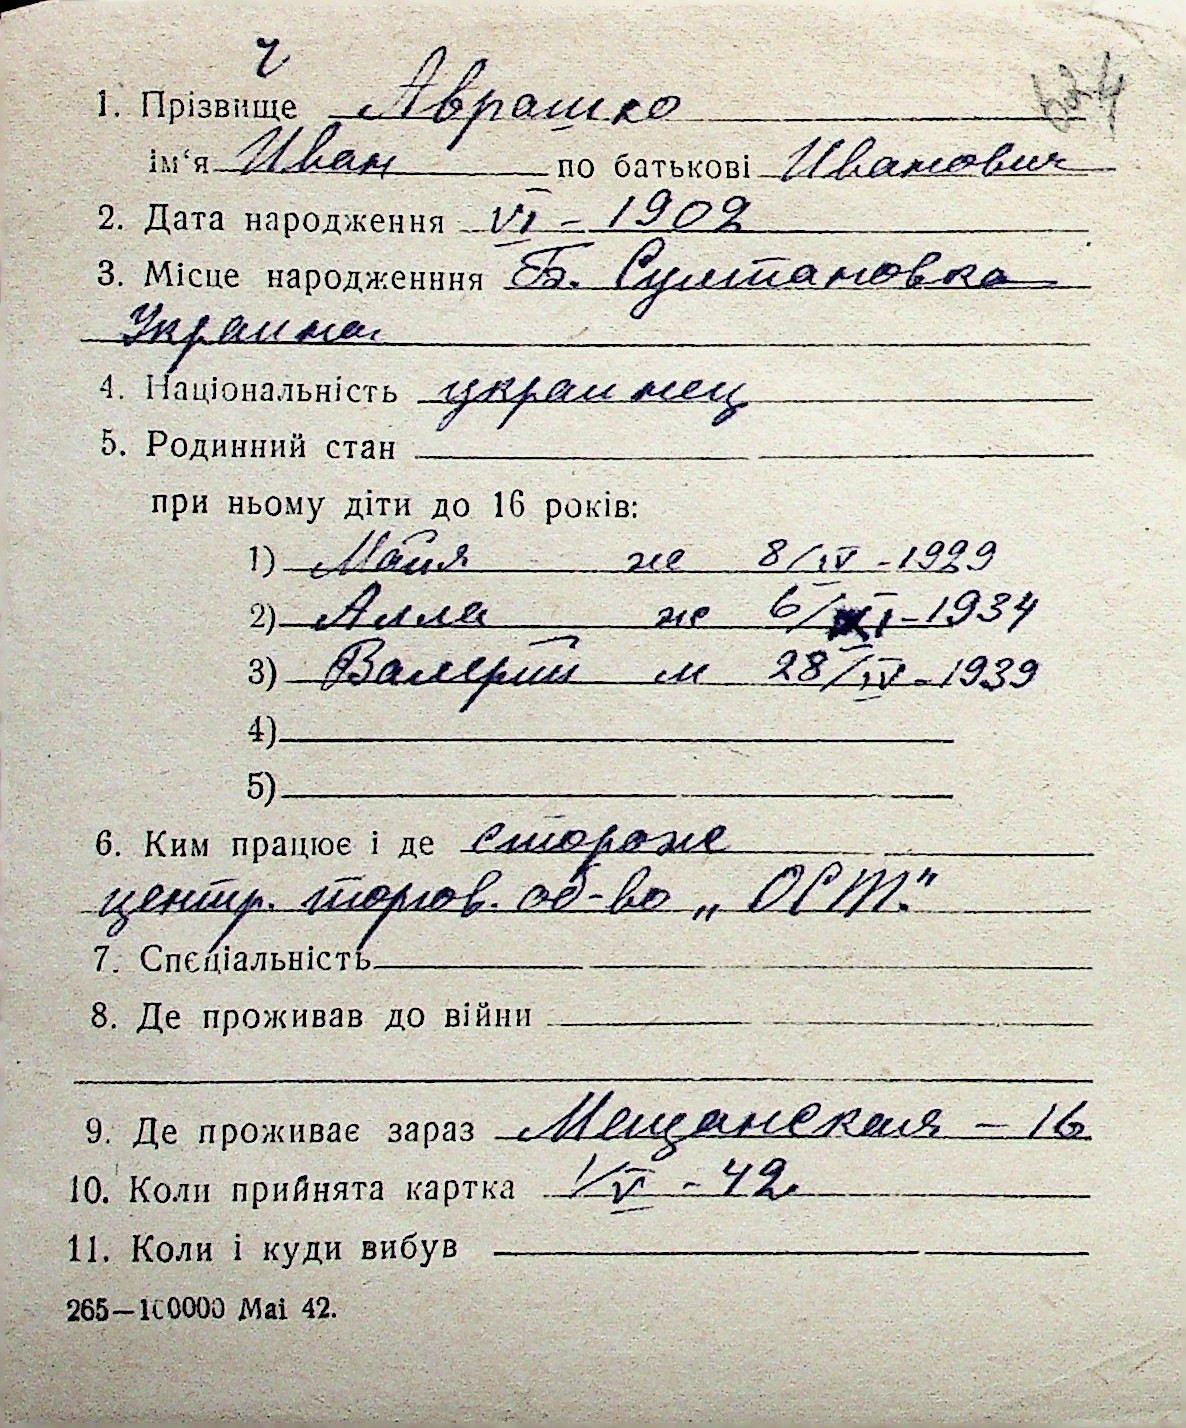 ч
1. Прізвище Аврашко
ім‘я Иван по батькові Иванович
2. Дата народження VI - 1902
3. Місце народженння Б. Султановка
Украина
4. Національність украинец
5. Родинний стан
при ньому діти до 16 років:
1) Майя ж 8/IV - 1929
2) Алла ж 6/XI - 1934
3) Валерий м 28/IV - 1939
4)
5)
6. Ким працює і де сторож
центр. торгов. об-во „ОСТ."
7. Спєціальність
8. Де проживав до війни
9. Де проживає зараз Мещанская - 16
10. Коли прийнята картка 1/V - 42.
11. Коли і куди вибув
265—100000 Mai 42.